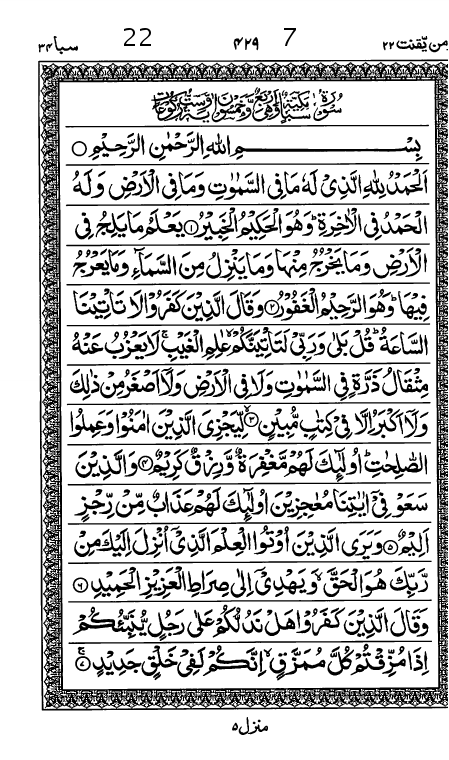 سبا ٣٤ 22 ٤٢٩ 7 ومن يقنت ٢٢
سُوْرَةُ سَبَاٍ مَّكِّيَّةٌ وَّهِيَ اَرْبَعٌ وَّخَمْسُوْنَ اٰيَةً وَّسِتُّ رُكُوْعَاتٍ
بِسْمِ اللّٰهِ الرَّحْمٰنِ الرَّحِيْمِ ○
اَلْحَمْدُ لِلّٰهِ الَّذِيْ لَهٗ مَا فِي السَّمٰوٰتِ وَمَا فِي الْاَرْضِ وَلَهُ
الْحَمْدُ فِي الْاٰخِرَةِ ؕ وَهُوَ الْحَكِيْمُ الْخَبِيْرُ ۝١ يَعْلَمُ مَا يَلِجُ فِي
الْاَرْضِ وَمَا يَخْرُجُ مِنْهَا وَمَا يَنْزِلُ مِنَ السَّمَآءِ وَمَا يَعْرُجُ
فِيْهَا ؕ وَهُوَ الرَّحِيْمُ الْغَفُوْرُ ۝٢ وَقَالَ الَّذِيْنَ كَفَرُوْا لَا تَاْتِيْنَا
السَّاعَةُ ؕ قُلْ بَلٰى وَرَبِّيْ لَتَاْتِيَنَّكُمْ ۙ عٰلِمِ الْغَيْبِ ۚ لَا يَعْزُبُ عَنْهُ
مِثْقَالُ ذَرَّةٍ فِي السَّمٰوٰتِ وَلَا فِي الْاَرْضِ وَلَاۤ اَصْغَرُ مِنْ ذٰلِكَ
وَلَاۤ اَكْبَرُ اِلَّا فِيْ كِتٰبٍ مُّبِيْنٍ ۝٣ لِّيَجْزِيَ الَّذِيْنَ اٰمَنُوْا وَعَمِلُوا
الصّٰلِحٰتِ ؕ اُولٰٓئِكَ لَهُمْ مَّغْفِرَةٌ وَّرِزْقٌ كَرِيْمٌ ۝٤ وَالَّذِيْنَ
سَعَوْ فِيْۤ اٰيٰتِنَا مُعٰجِزِيْنَ اُولٰٓئِكَ لَهُمْ عَذَابٌ مِّنْ رِّجْزٍ
اَلِيْمٌ ۝٥ وَيَرَى الَّذِيْنَ اُوْتُوا الْعِلْمَ الَّذِيْۤ اُنْزِلَ اِلَيْكَ مِنْ
رَّبِّكَ هُوَ الْحَقَّ ۙ وَيَهْدِيْۤ اِلٰى صِرَاطِ الْعَزِيْزِ الْحَمِيْدِ ۝٦
وَقَالَ الَّذِيْنَ كَفَرُوْا هَلْ نَدُلُّكُمْ عَلٰى رَجُلٍ يُّنَبِّئُكُمْ
اِذَا مُزِّقْتُمْ كُلَّ مُمَزَّقٍ ۙ اِنَّكُمْ لَفِيْ خَلْقٍ جَدِيْدٍ ۝٧
منزل ٥